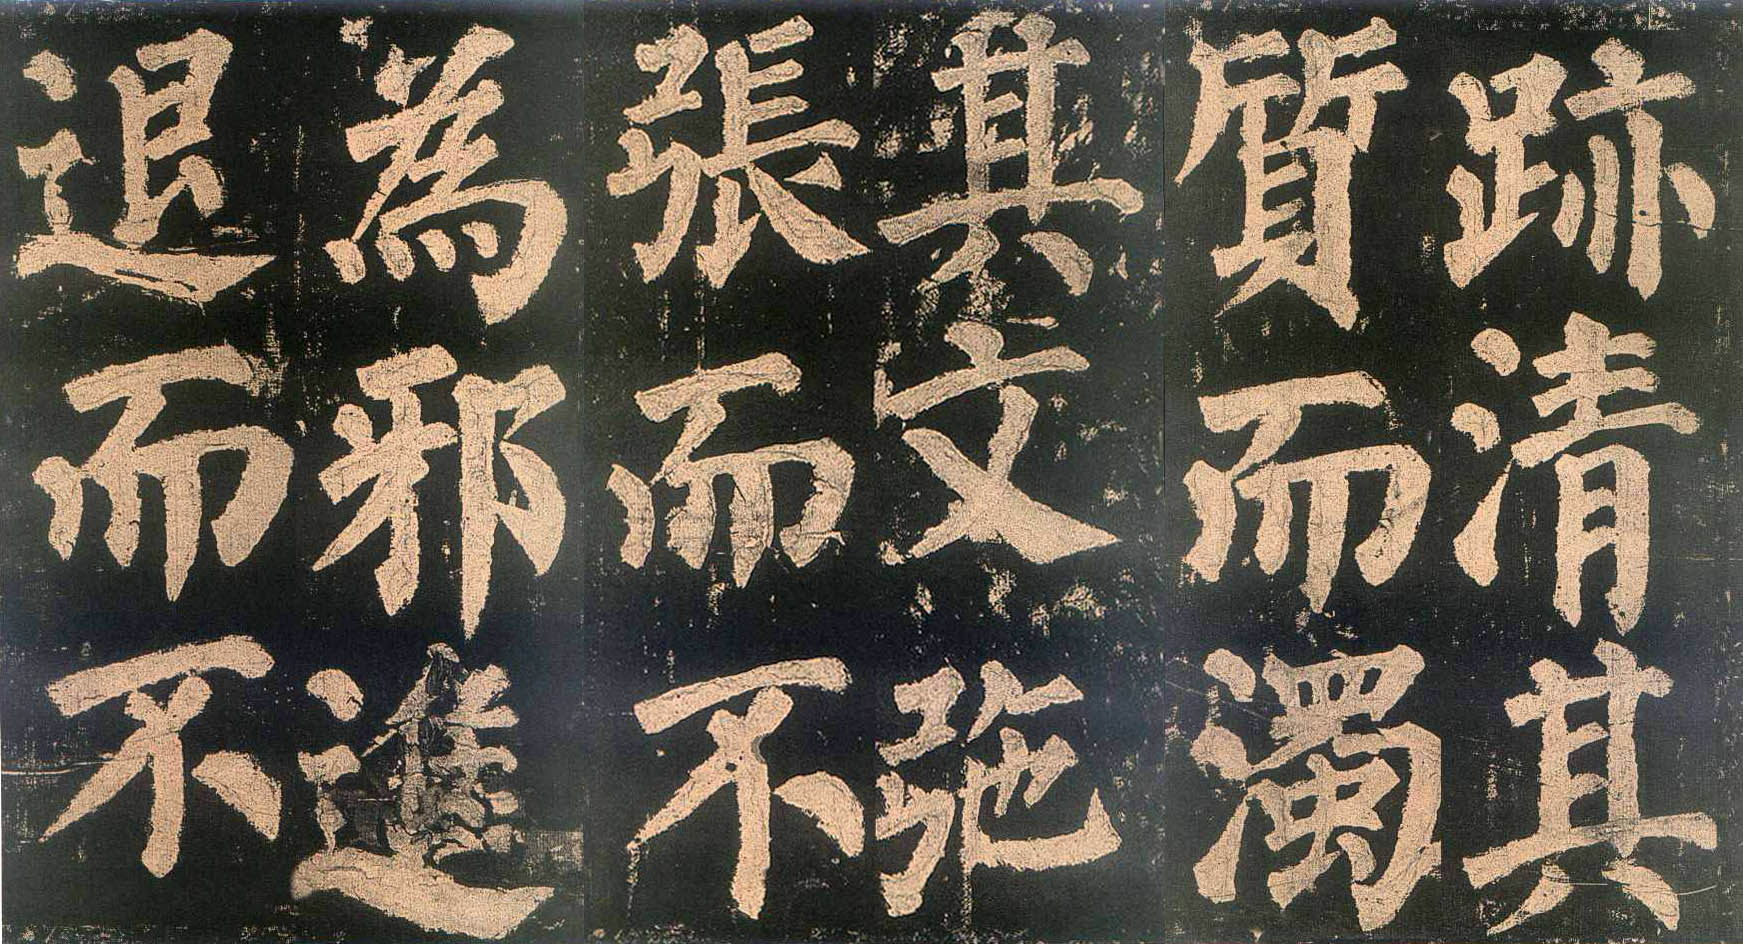 跡清其
質而濁
其文弛
張而不
為邪進
退而不